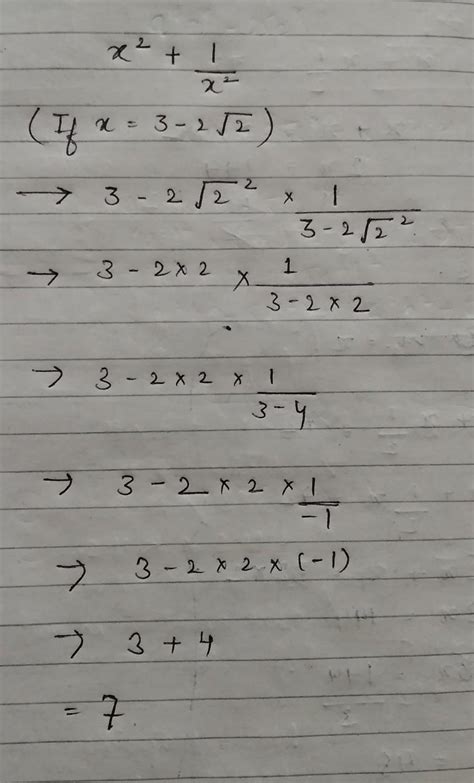 x² + 1/x²
(If x = 3 - 2√2)
→ 3 - 2√2² × 1/3 - 2√2²
→ 3 - 2 × 2 × 1/3 - 2 × 2
→ 3 - 2 × 2 × 1/3 - 4
→ 3 - 2 × 2 × 1/-1
→ 3 - 2 × 2 × (-1)
→ 3 + 4
= 7